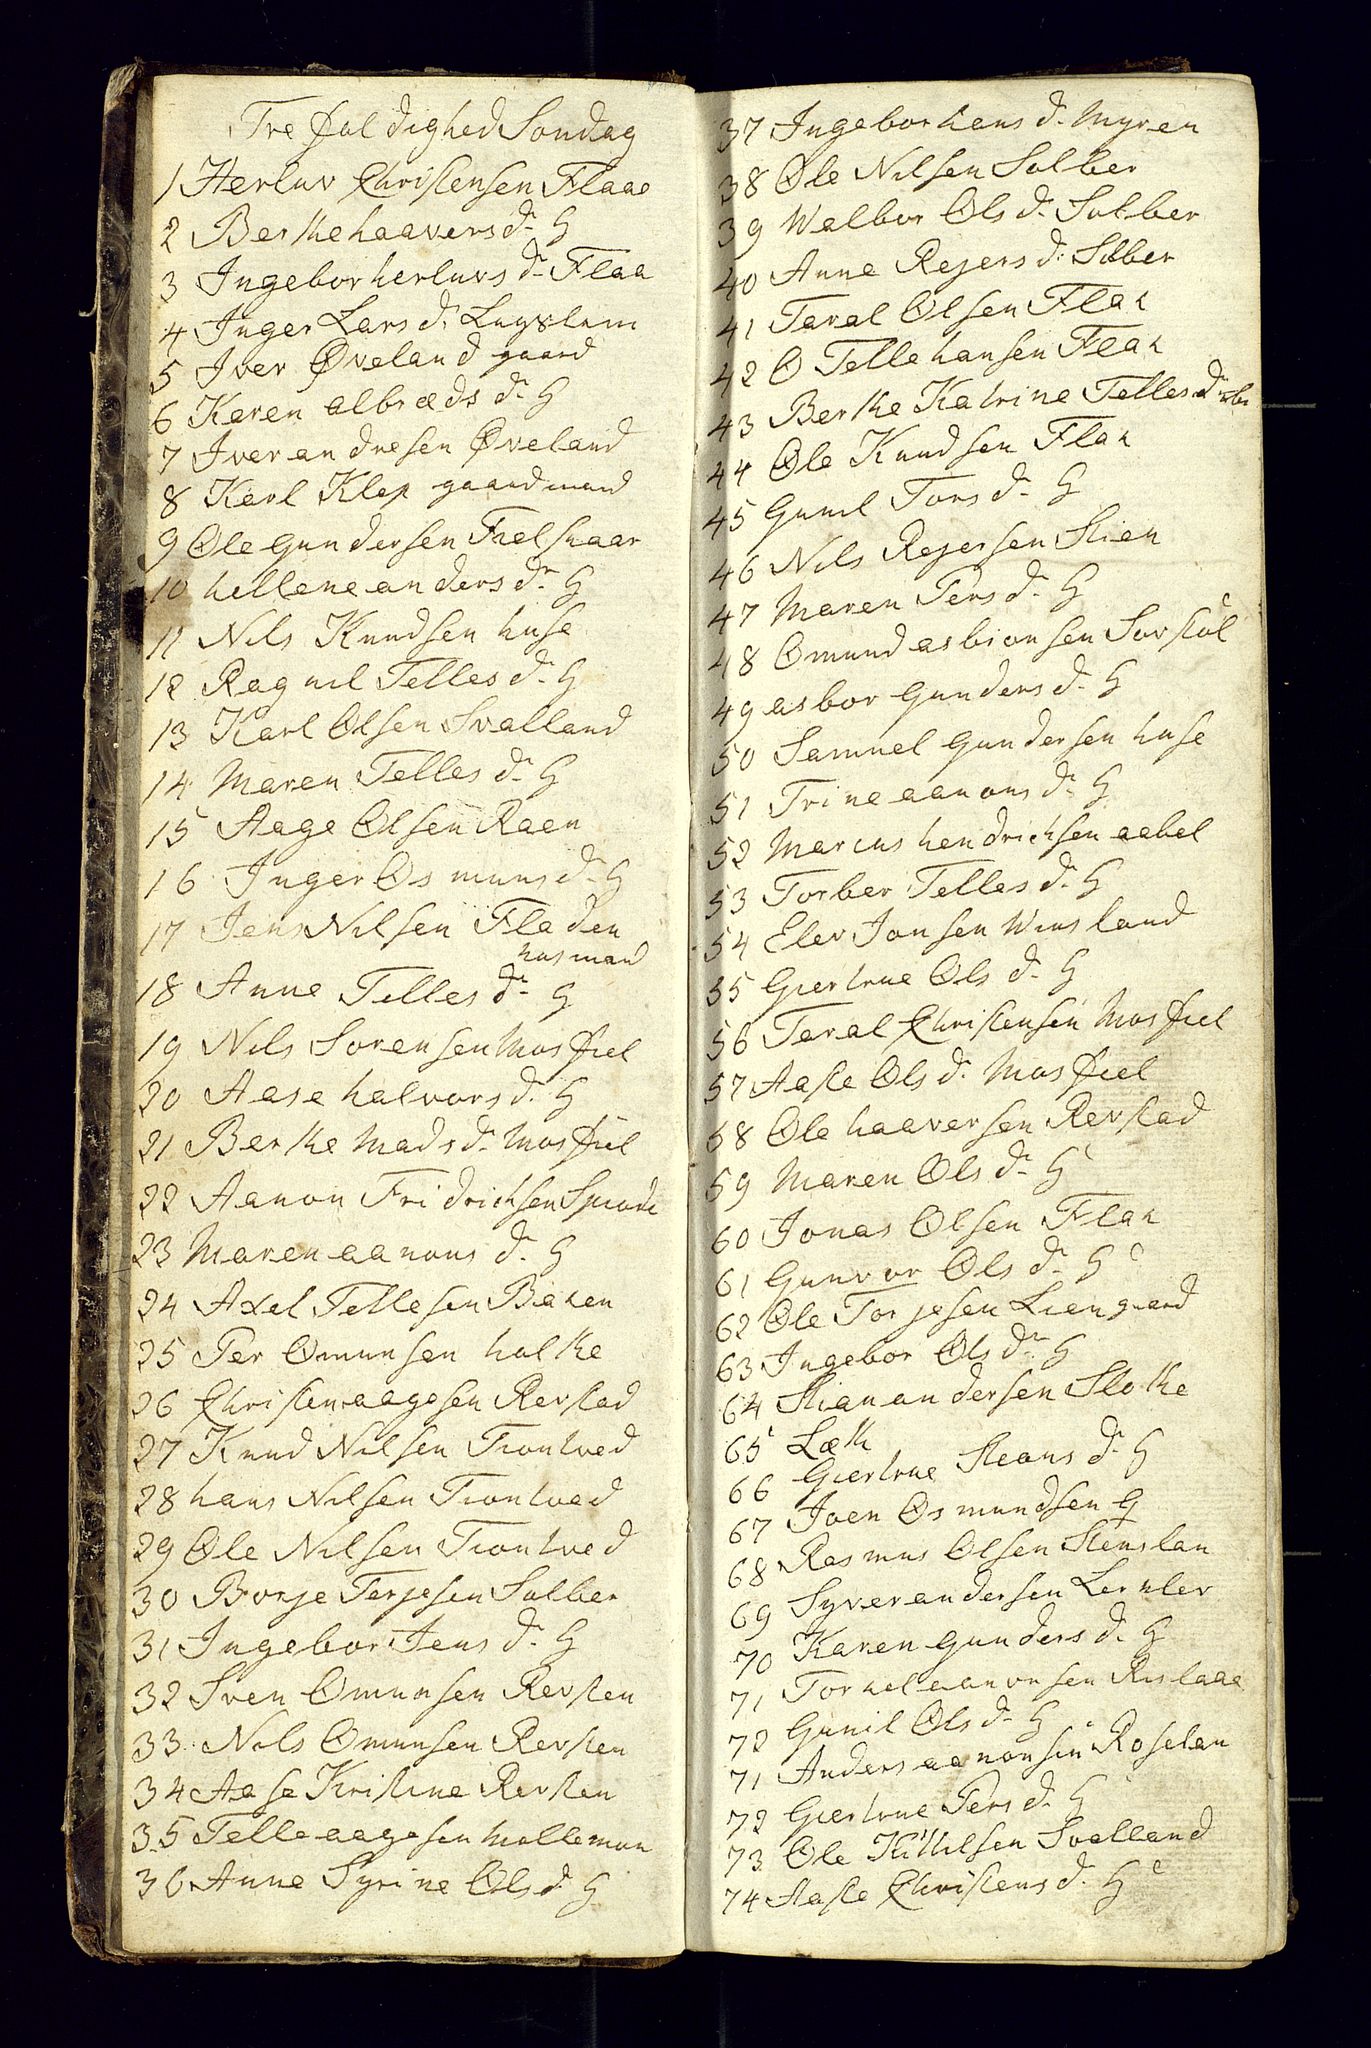 Tre fol dighed Sondag
1 Herluv Christensen Flaae
2 Berthe haavers d. H
3 Ingebor herluvs d. Flaa
4 Inger Lars d.
5 Iver Øveland gaard
6 Karen albreds d. H
7 Iver andresen Øveland
8 Karl Klep gaardmand
9 Ole gundersen Fielskaar
10 hellene anders d. H
11 Nils Knudsen huse
12 Ragnil Telles d. H
13 Karl Olsen Svalland
14 Maren Telles d. H
15 Aage Olsen Raen
16 Inger Osmuns d. H
17 Jens Nilsen Fladen
husmand
18 Anne Telles d. H
19 Nils Sorensen Mosfiel
20 Aase halvors d. H
21 Berthe Mads d. Mosfiel
22 Aanon Fridrichsen
23 Maren aanons d. H
24 Axel Tellesen Baken
25 Per Omunsen holthe
26 Christen aagesen Revstad
27 Knud Nilsen Tiontved
28 hans Nilsen Tiontved
29 Ole Nilsen Tiontved
30 Borje Terjesen Solber
31 Ingebor Jens d. H
32 Sven Omunsen Revsten
33 Nils Omunsen Revsten
34 Aase Kristine Revsten
35 Telle aagesen Mollemon
36 Anne Syrine Ols d. H
37 Ingebor hans d. Myren
38 Ole Nilsen Solber
39 Walbor Ols d. Solber
40 Anne Rejers d. Solber
41 Taral Olsen Flak
42 O Telle hansen Flak
43 Berthe Katrine Telles d.
44 Ole Knudsen Flak
45 Gunil Tors d. H
46 Nils Rejersen Stien
47 Maren Pers d. H
48 Omund asbionsen Sorstøl
49 asbor gunders d. H
50 Samuel gundersen huse
51 Trine aanons d. H
52 Marcus hendrichsen aabel
53 Torber Telles d. H
54 Elev Jonsen Winsland
55 Giertrue Ols d. H
56 Taral Christensen Mosfiel
57 Aaste Ols d. Mosfiel
58 Ole haaversen Revstad
59 Maren Ols d. H
60 Jonas Olsen Flak
61 Gunvor Ols d. H
62 Ole Torjesen Liengaard
63 Ingebor Ols d. H
64 Stian andersen Slothe
65 Læth
66 Giertrue Steans d. H
67 Joen Osmundsen H
68 Rasmus Olsen Stenslan
69 Syver andersen Lerklev
70 Karen gunders d. H
71 Torkel aanonsen Rislaae
72 Gunil Ols d. H
71 Anders aanonsen Roselan
72 Giertrue Pers d. H
73 Ole Kittilsen Svalland
74 Aaste Christens d. H